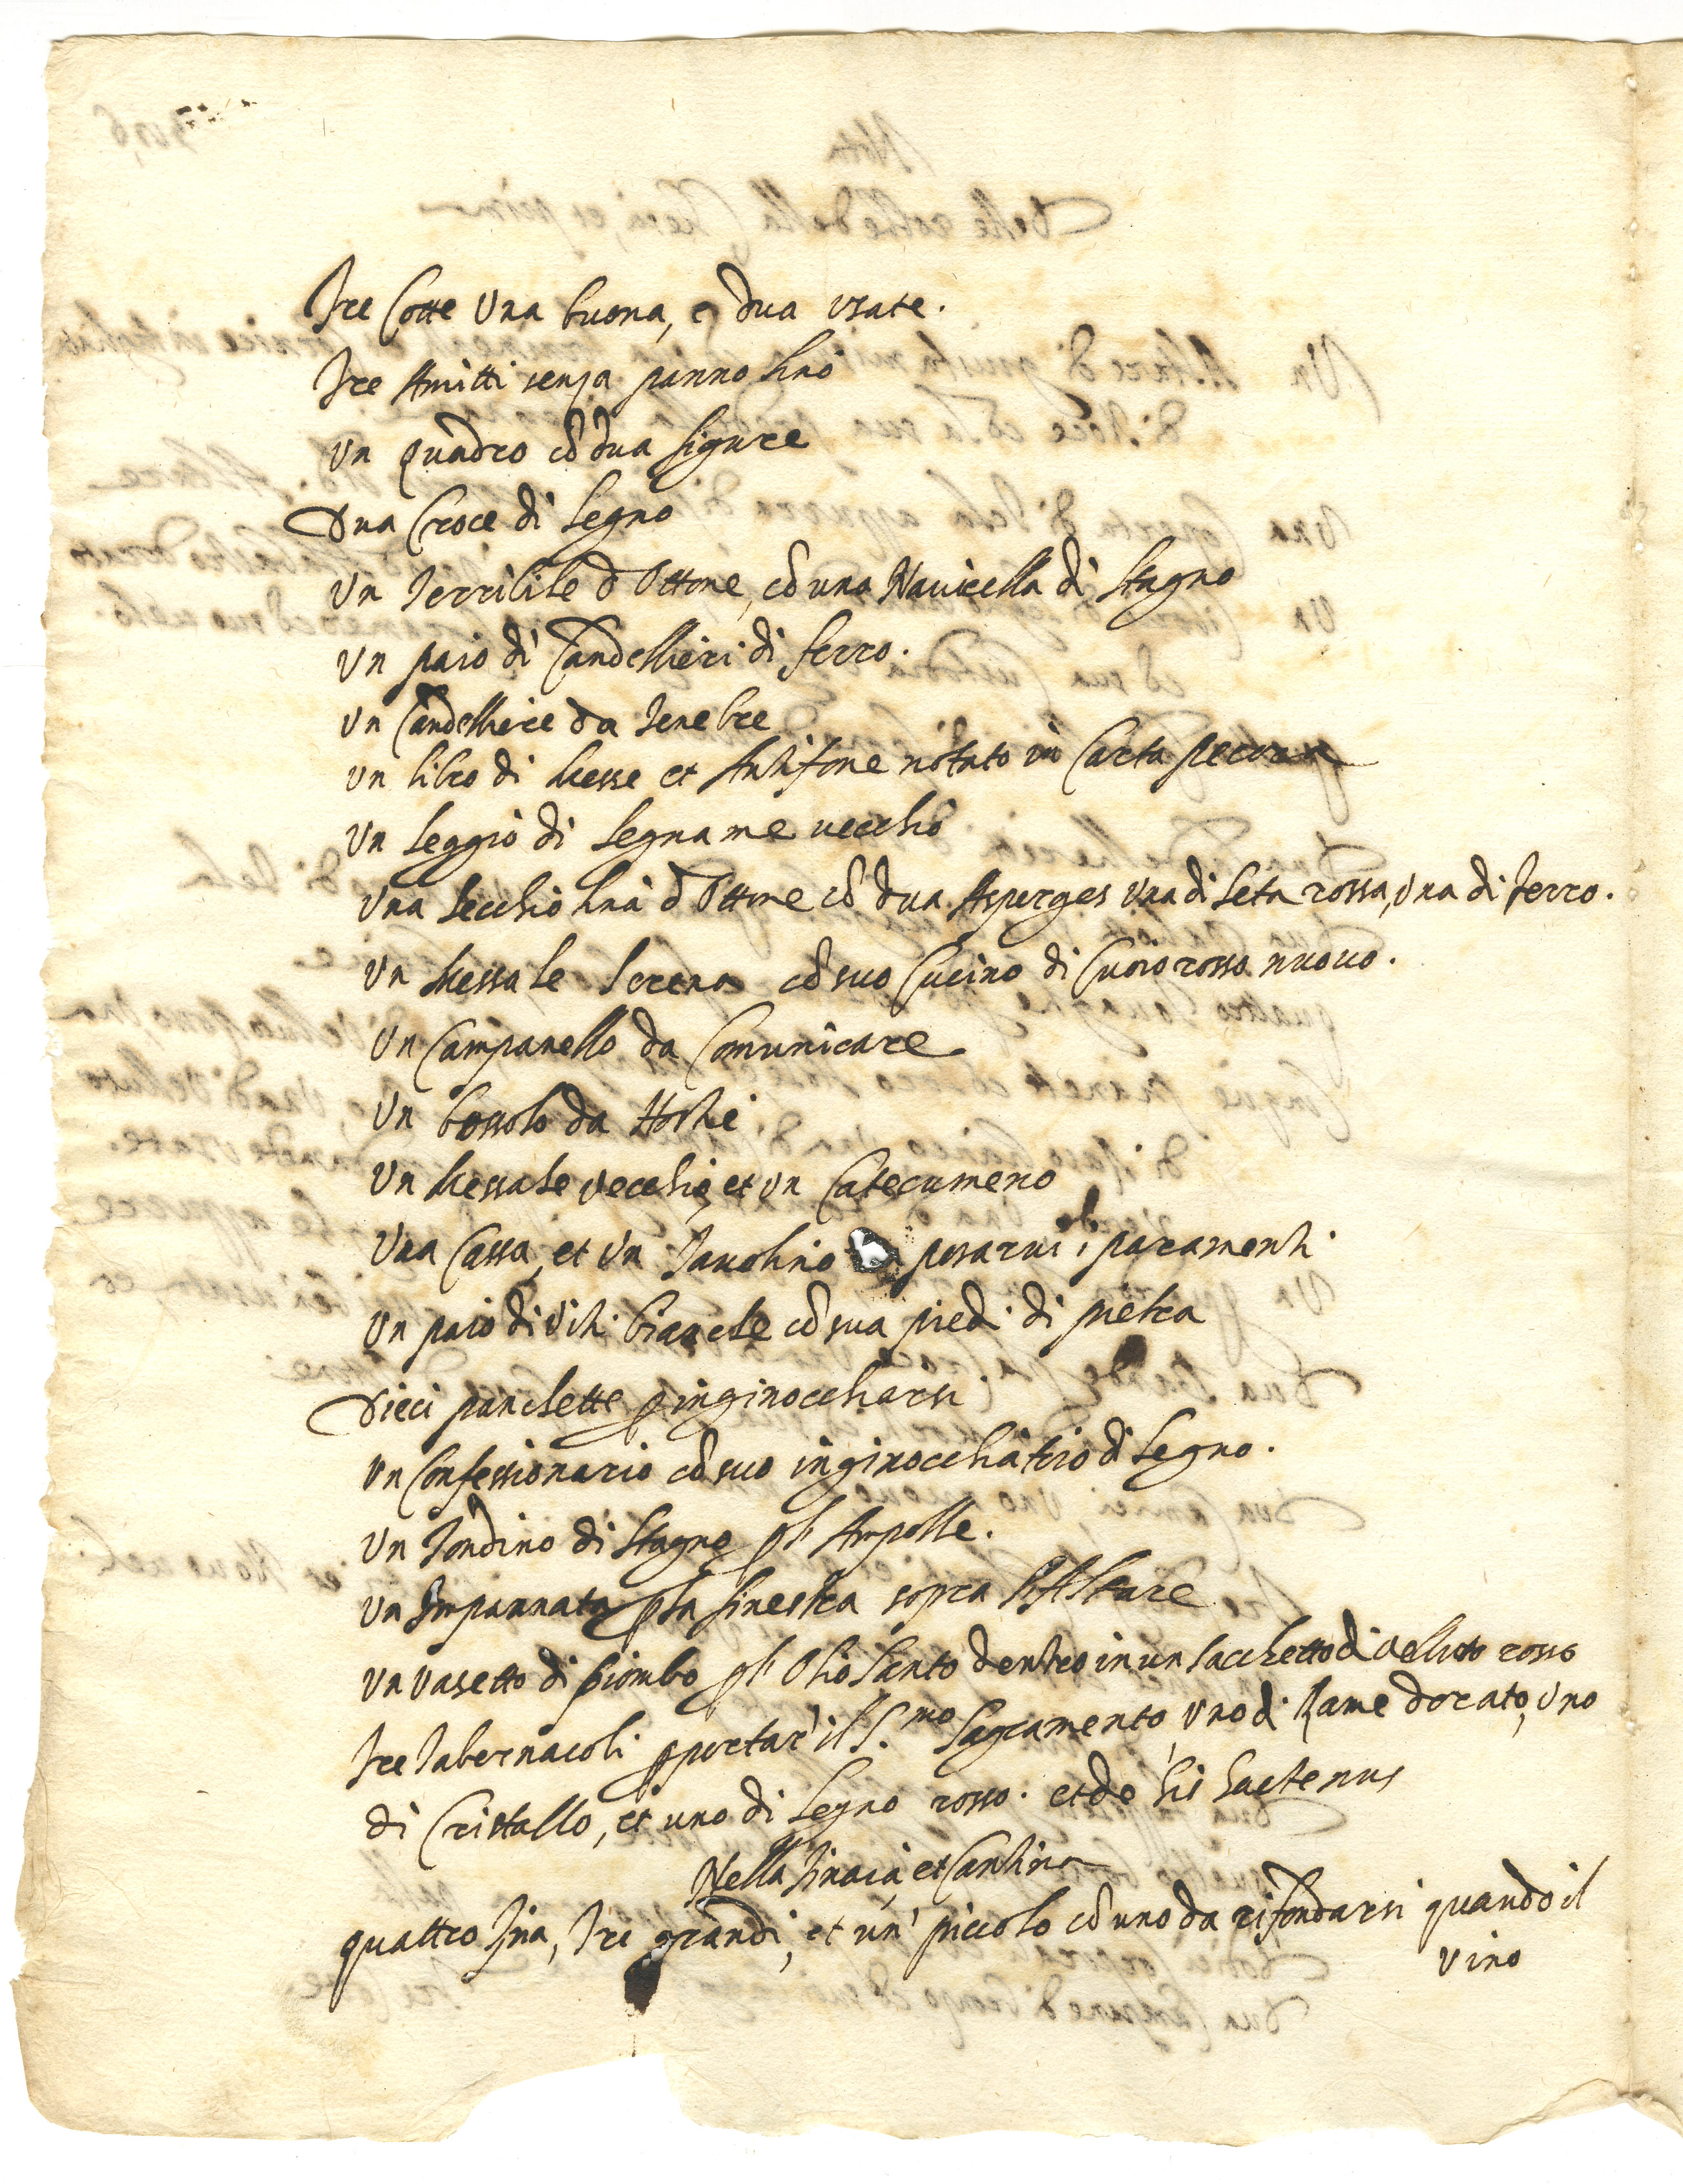 Tre Cotte Una buona, e dua usate.
Tre Amitti senza panno lino
Un quadro cõ dua figure
Una Croce di legno
Un Terribile d Ottone, cõ una Navicella di stagno
Un paio di Candellieri di ferro.
Un Candelliere da tenebre
Un libro di Messe et Antifone notato in Carta pecora
Un leggio di legname vecchio
Una secchiolina d Ottone cõ dua Asperges una di seta rossa, una di ferro.
Un Messale cõ suo Cucino di Cuoio rosso nuovo.
Un Campanello da Comunicare
Un bossolo da Hostie
Un Messale vecchio, et un Catecumeno
Una Cassa, et un Tavolino posarvi i paramenti
Un paio di bianche cõ sua piedi di pietra
Dieci panchette p inginocchiarsi
Un Confessionario cõ suo inginocchiatoio di legno.
Un Tondino di stagno p l' Ampolle.
Un Impannata p la finestra sopra l'Altare
Un vasetto di piombo p l' Olio santo dentro in un sacchetto di velluto rosso
Tre Tabernacoli p portar' il S.mo Sagramento, uno di Rame dorato, uno
di Cristallo, et uno di legno rosso. et de his hactenus
Nella Tinaia, et Cantina
quattro Tina, Tre grandi, et un' piccolo cõ uno da rifondarsi quando il
vino